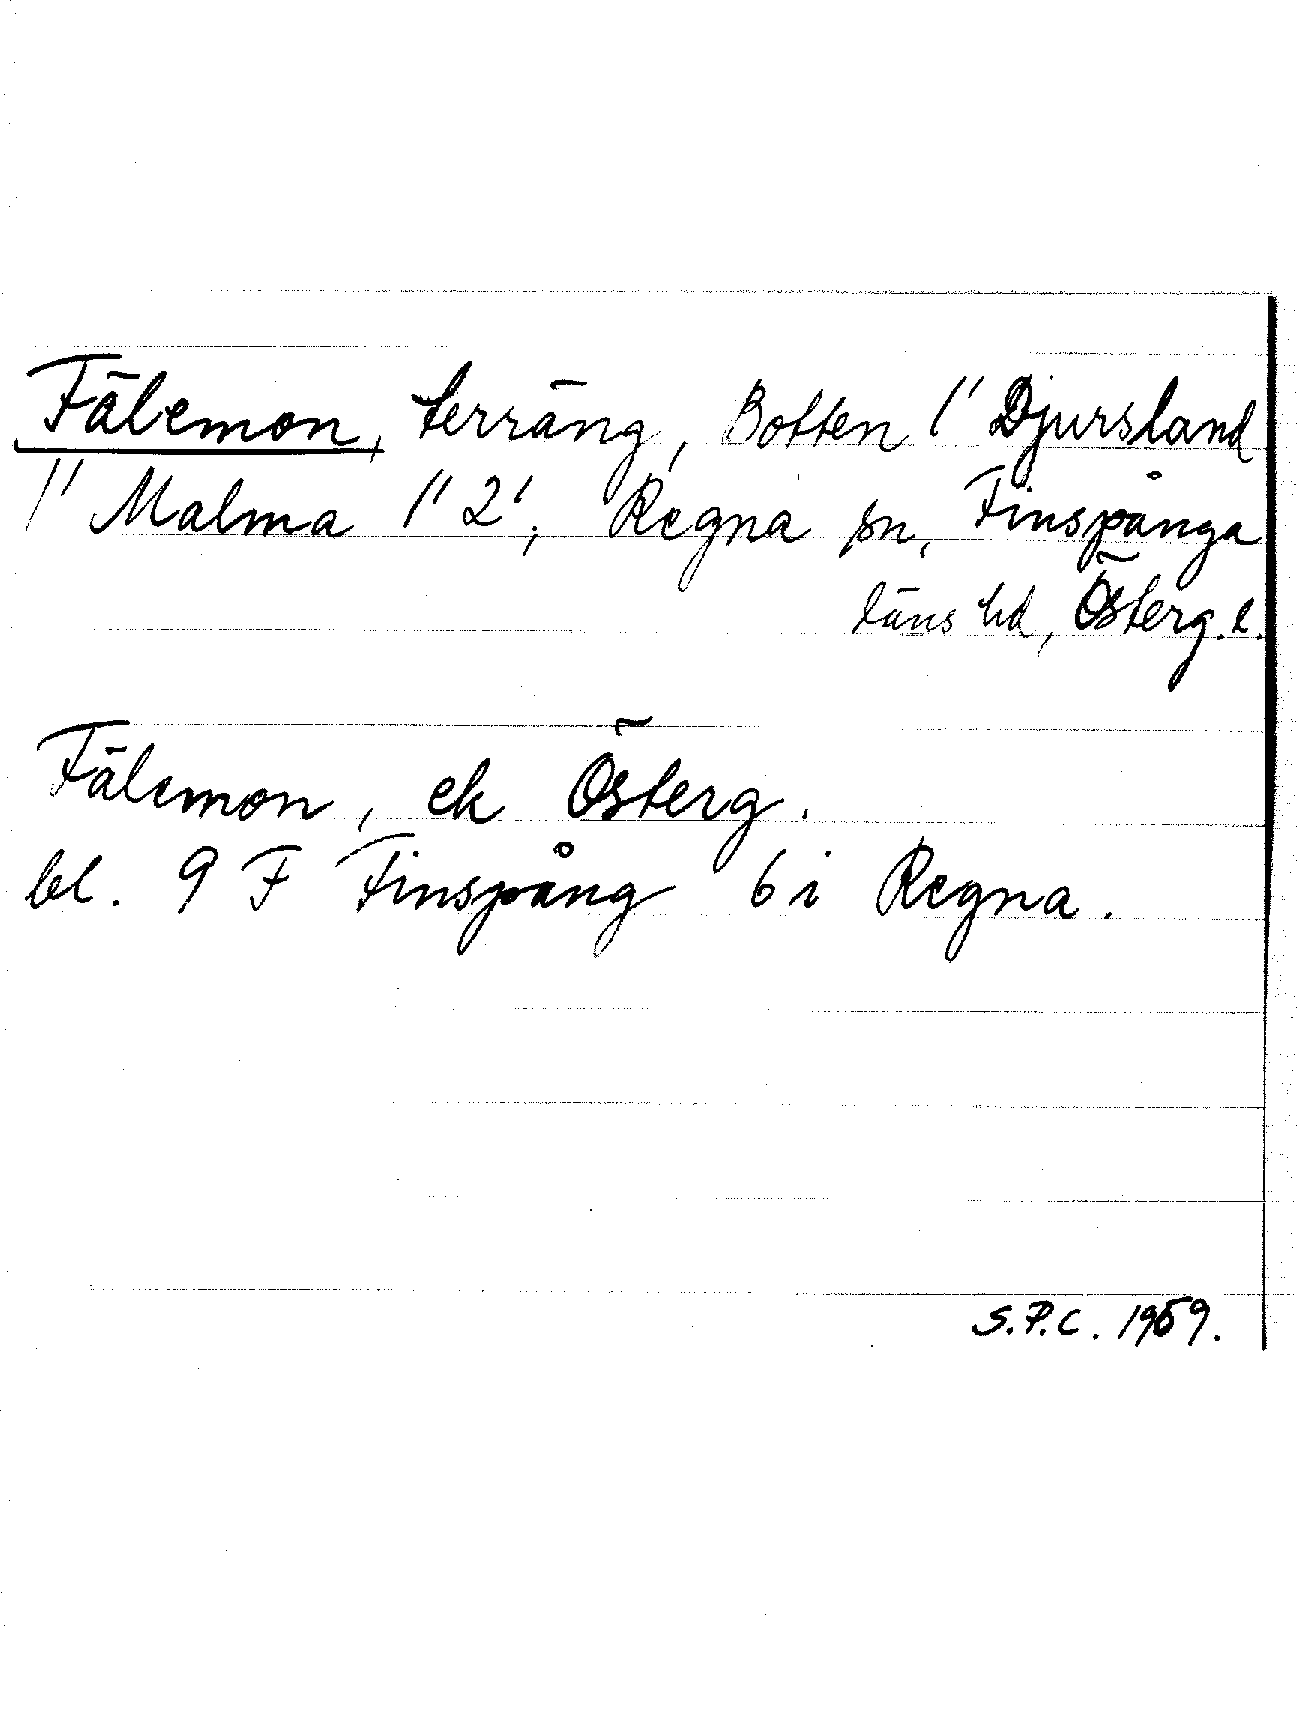 Fälemon, terräng, Botten 1" Djursland
1" Malma 1" 2', Regna sn, Finspånga
läns hd, Österg. l.
Fälemon, ek Österg.
bl. 9 F Finspång 6 i Regna.
S.P.C. 1969.